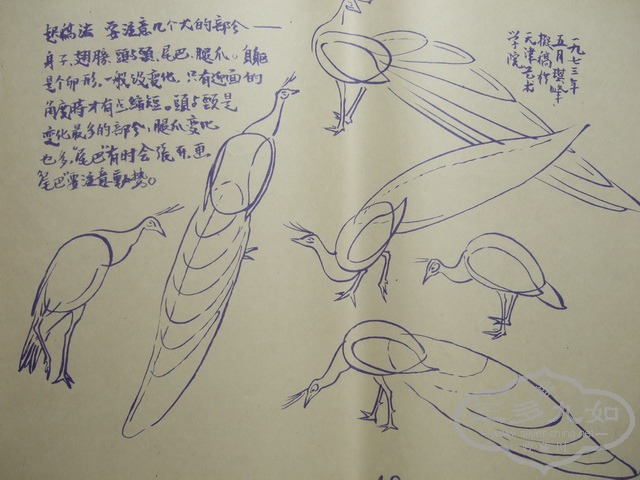 起稿法 要注意几个大的部分——
身子、翅膀、頭与頸、尾巴、腿爪。身軀
是个卵形,一般没变化,只有迎面的
角度時才有点縮短。頭与頸是
变化最多的部分,腿爪变化
也多,尾巴有时会張开,画
尾巴要注意動勢。
一九七三年
五月琪峰
擬稿於
天津艺术
学院
多九如